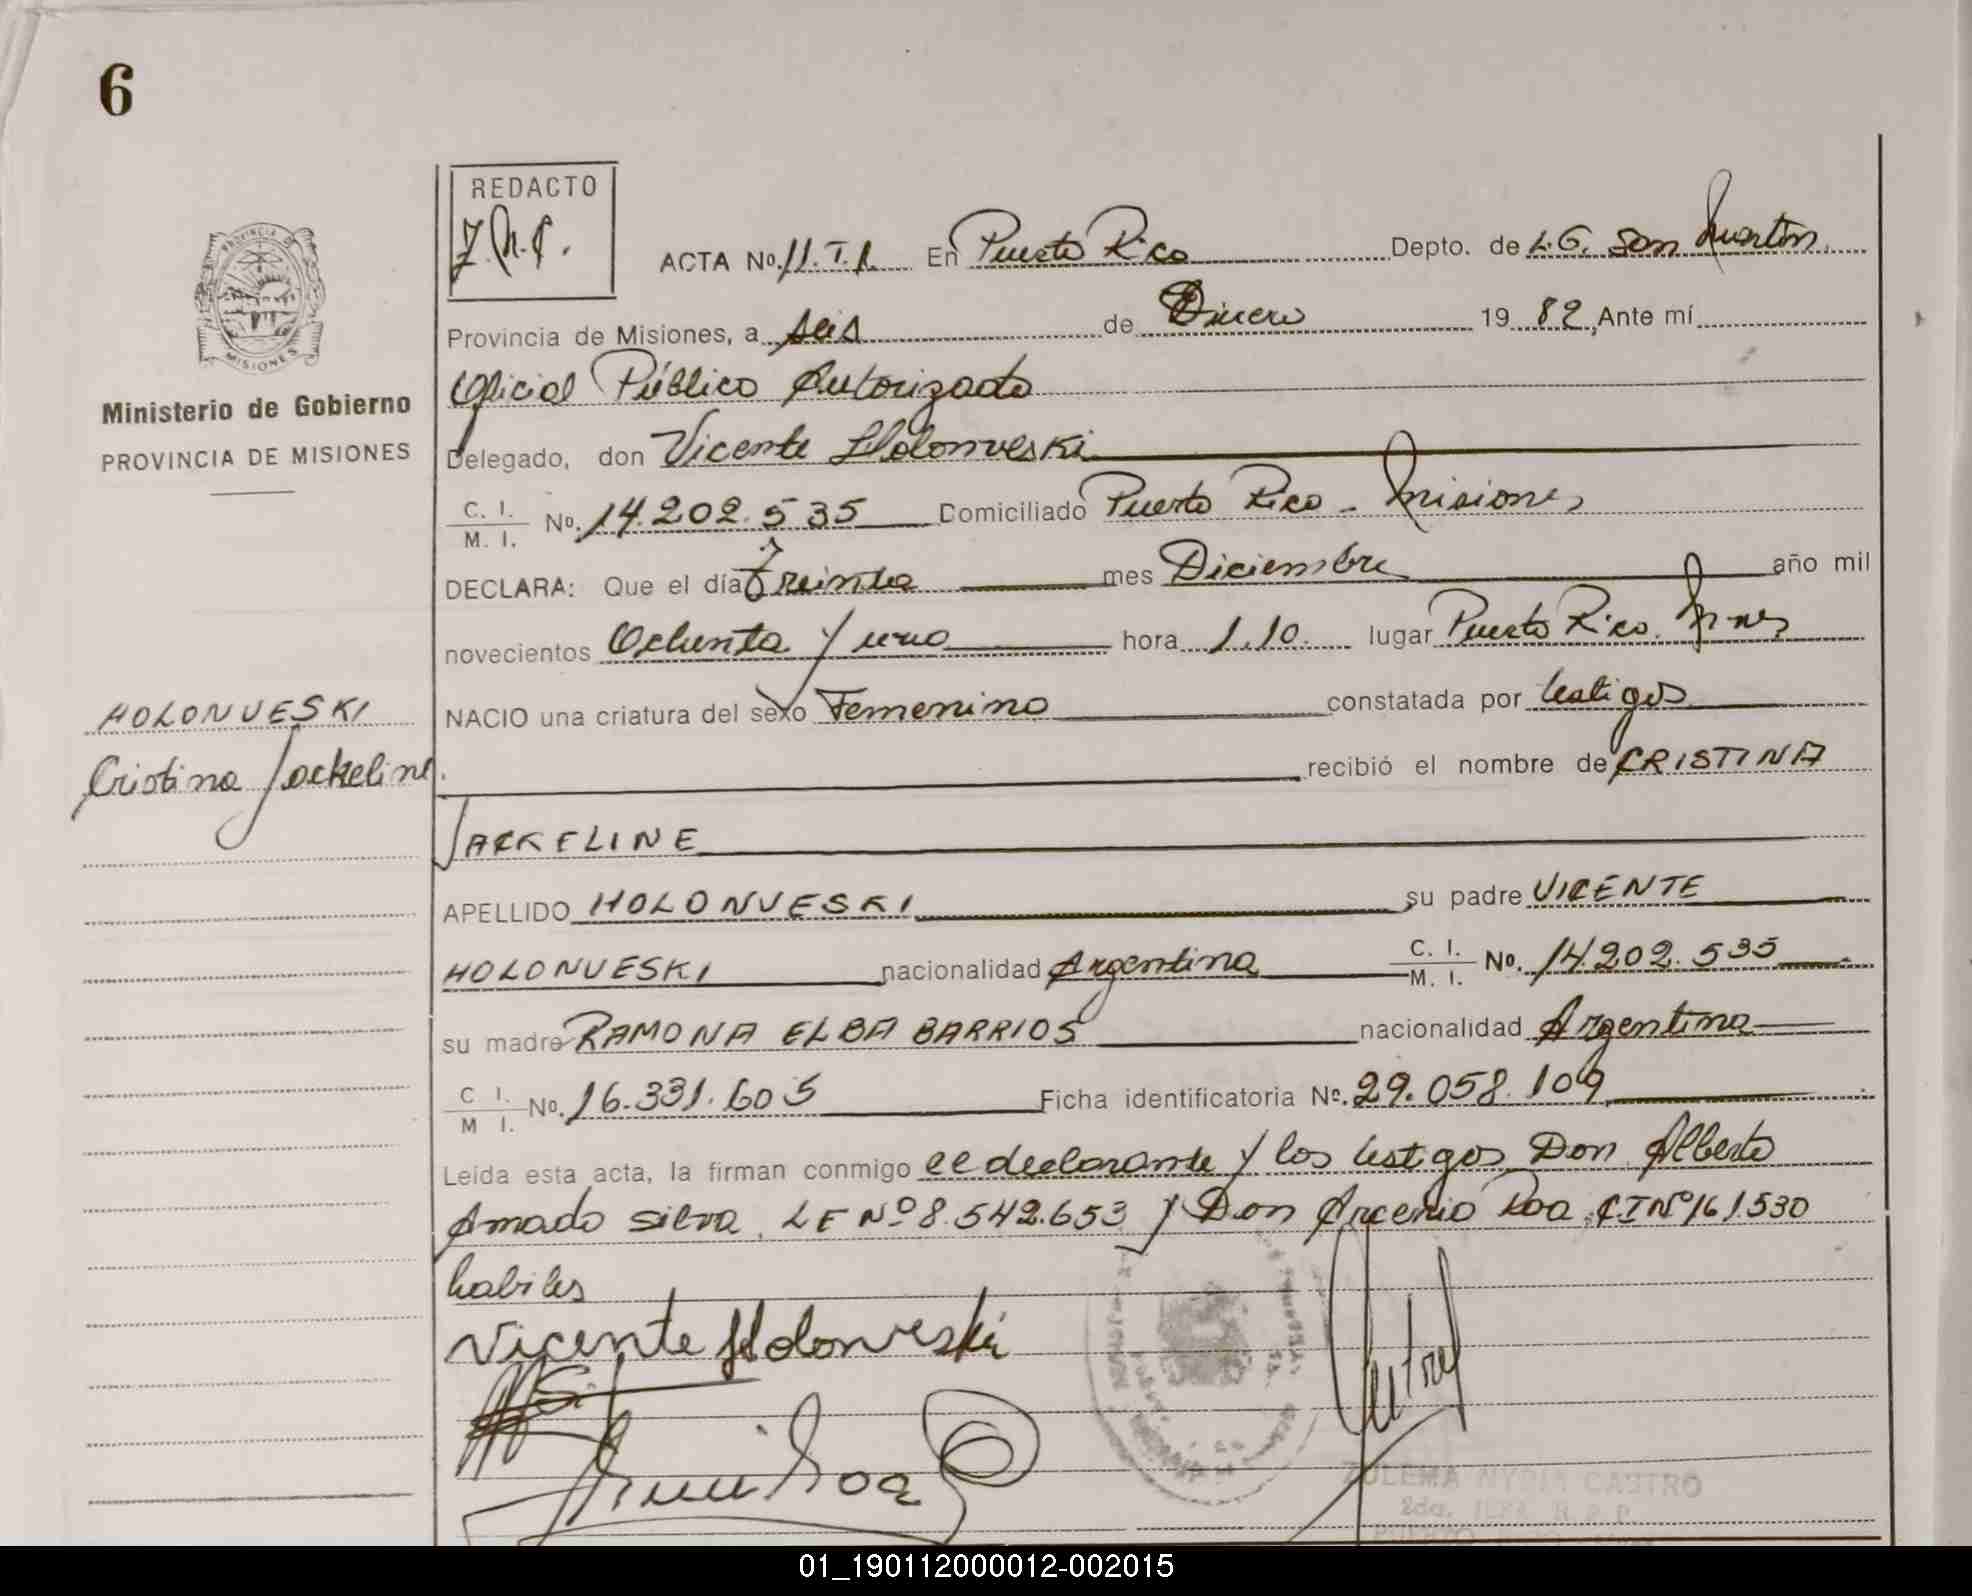 6
REDACTO
ACTA No. 11.T.1. En Puerto Rico Depto. de L.G. San Martin
Provincia de Misiones, a seis de Enero 1982, Ante mí
Oficial Público Autorizado
Delegado, don Vicente Holonveski
C. I.
M. I. No. 14.202.535 Domiciliado Puerto Rico - Misiones
DECLARA: Que el día Treinta mes Diciembre año mil
novecientos Ochenta y uno hora 1.10. lugar Puerto Rico. Mnes
NACIO una criatura del sexo Femenino constatada por testigos
recibió el nombre de CRISTINA
JACKELINE
APELLIDO HOLONVESKI su padre VICENTE
HOLONVESKI nacionalidad Argentina C. I.
M. I. No. 14.202.535
su madre RAMONA ELBA BARRIOS nacionalidad Argentina
C I.
M I. No. 16.331.605 Ficha identificatoria No. 29.058.109
Leída esta acta, la firman conmigo el declarante y los testigos Don Alberto
Amado Silva, LE Nº 8.542.653 y Don Arcenio Roa CI Nº 161.530
habiles
Vicente Holonveski
ZULEMA NYDIA CASTRO
PROVINCIA DE
MISIONES
Ministerio de Gobierno
PROVINCIA DE MISIONES
HOLONVESKI
Cristina Jackeline.
01_190112000012-002015